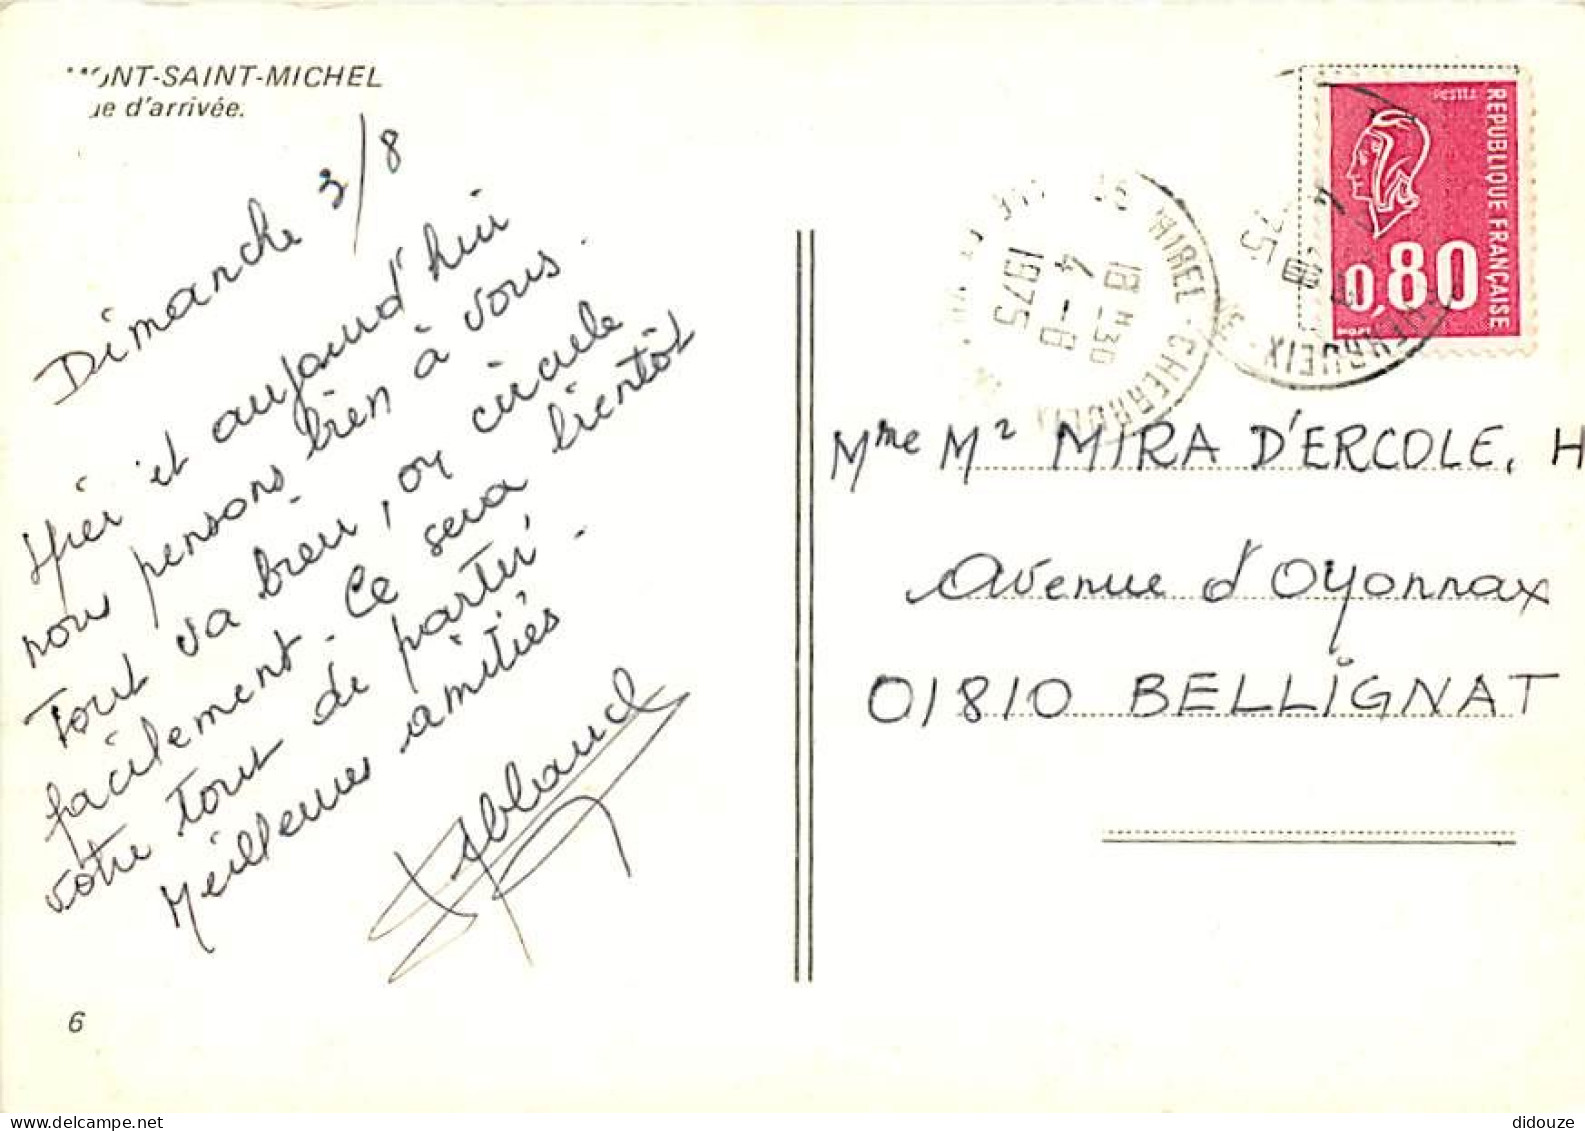 MONT-SAINT-MICHEL
d'arrivée.
Dimanche 3/8
Hier et aujourd'hui
nous pensons bien à vous.
Tout va bien, on circule
facilement. Ce sera bientôt
votre tout de partir.
Meilleures amitiés
6
POSTES
REPUBLIQUE FRANÇAISE
0,80
18 H 30
4 - 8
1975
CHERRUEIX
Mme Mr MIRA D'ERCOLE. H
Avenue d'Oyonnax
01810 BELLIGNAT
didouze